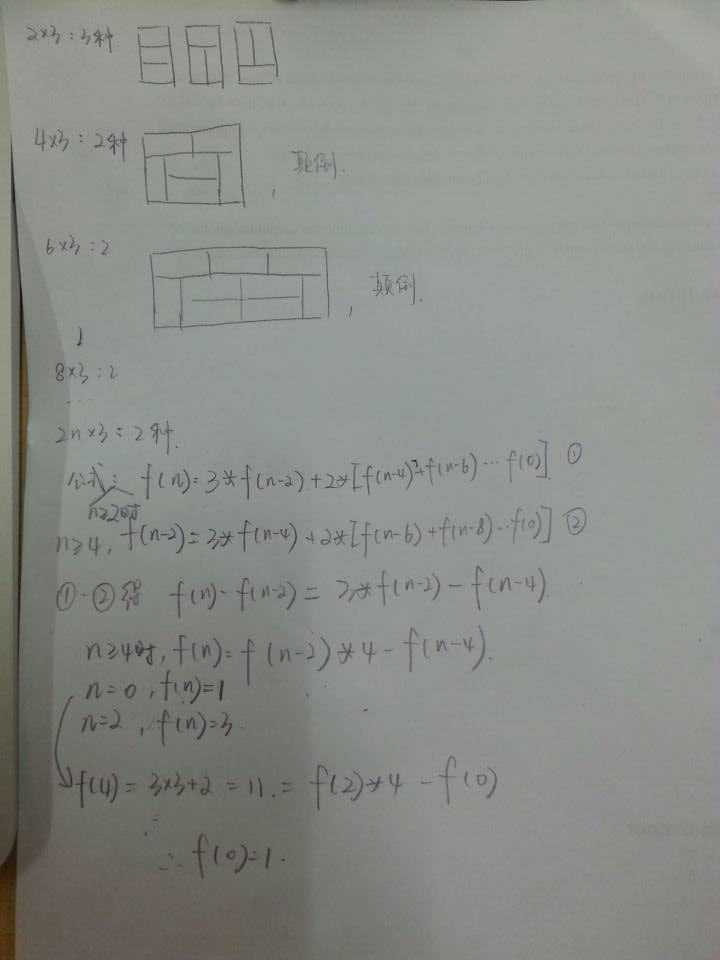 2×3:3种
4×3:2种
,颠倒.
6×3:2
,颠倒.
8×3:2
...
2n×3:2种.
公式: f(n)=3*f(n-2)+2*[f(n-4)+f(n-6)…f(0)] ①
n≥2时
n≥4, f(n-2)=3*f(n-4)+2*[f(n-6)+f(n-8)…f(0)] ②
①-②得 f(n)-f(n-2)=3*f(n-2)-f(n-4)
n≥4时,f(n)=f(n-2)*4-f(n-4).
n=0,f(n)=1
n=2,f(n)=3
f(4)=3×3+2=11.=f(2)*4-f(0)
∴f(0)=1.